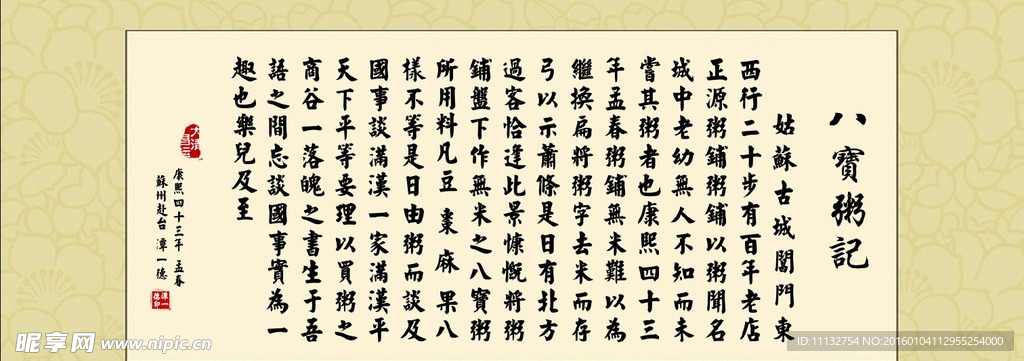 八寶粥記
姑蘇古城閶門東
西行二十步有百年老店
正源粥鋪粥鋪以粥聞名
城中老幼無人不知而未
嘗其粥者也康熙四十三
年孟春粥鋪無米難以為
繼換扁將粥字去米而存
弓以示蕭條是日有北方
過客恰逢此景慷慨將粥
鋪盤下作無米之八寶粥
所用料凡豆棗麻果八
樣不等是日由粥而談及
國事談滿漢一家滿漢平
天下平等要理以買粥之
商谷一落魄之書生于吾
語之間忘談國事實為一
趣也樂兒及至
康熙四十三年孟春
蘇州赴台潭一德
昵享网 www.nipic.cn
ID:11132754 NO:20160104112955254000